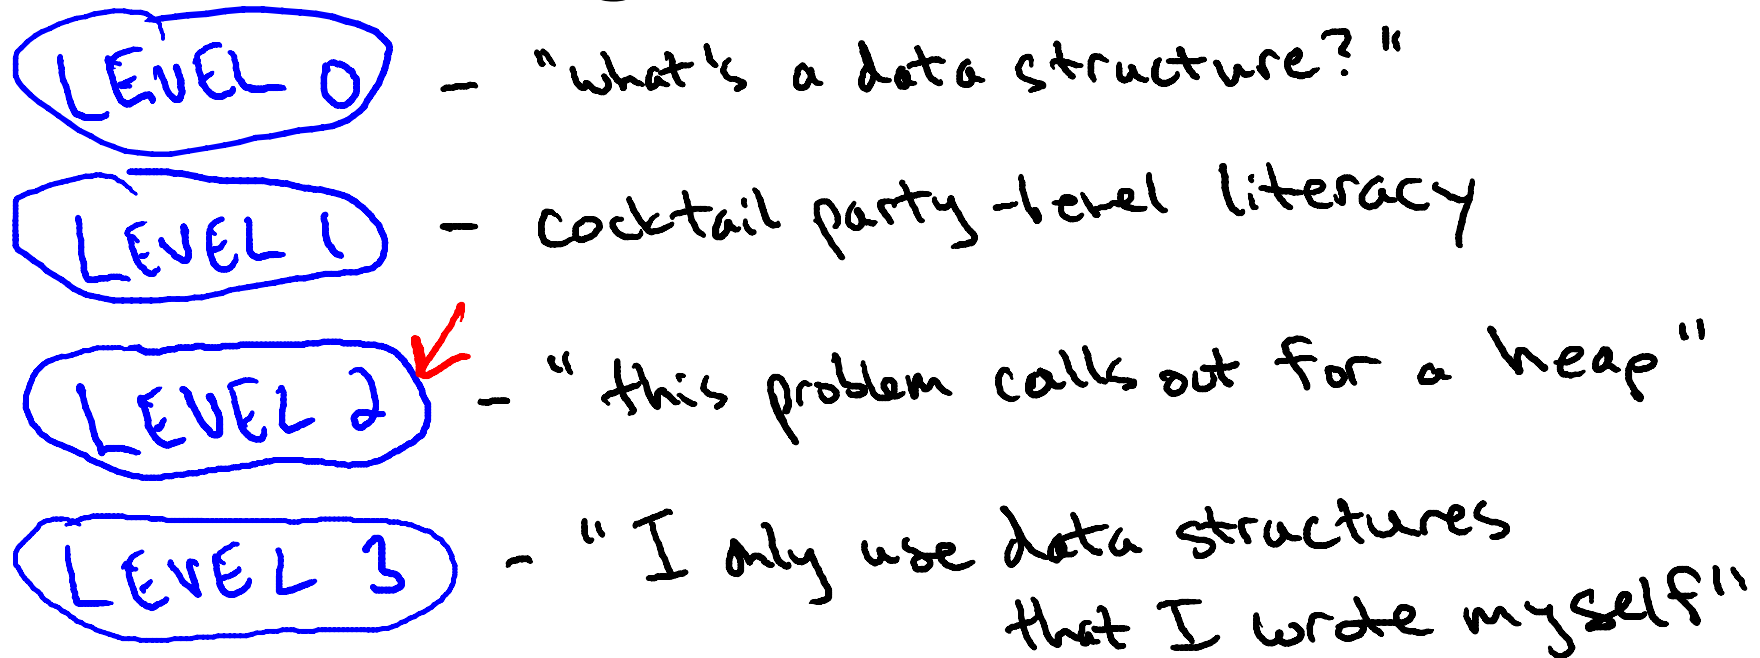 LEVEL 0 - "what's a data structure?"
LEVEL 1 - cocktail party-level literacy
LEVEL 2 - "this problem calls out for a heap"
LEVEL 3 - "I only use data structures
that I wrote myself"